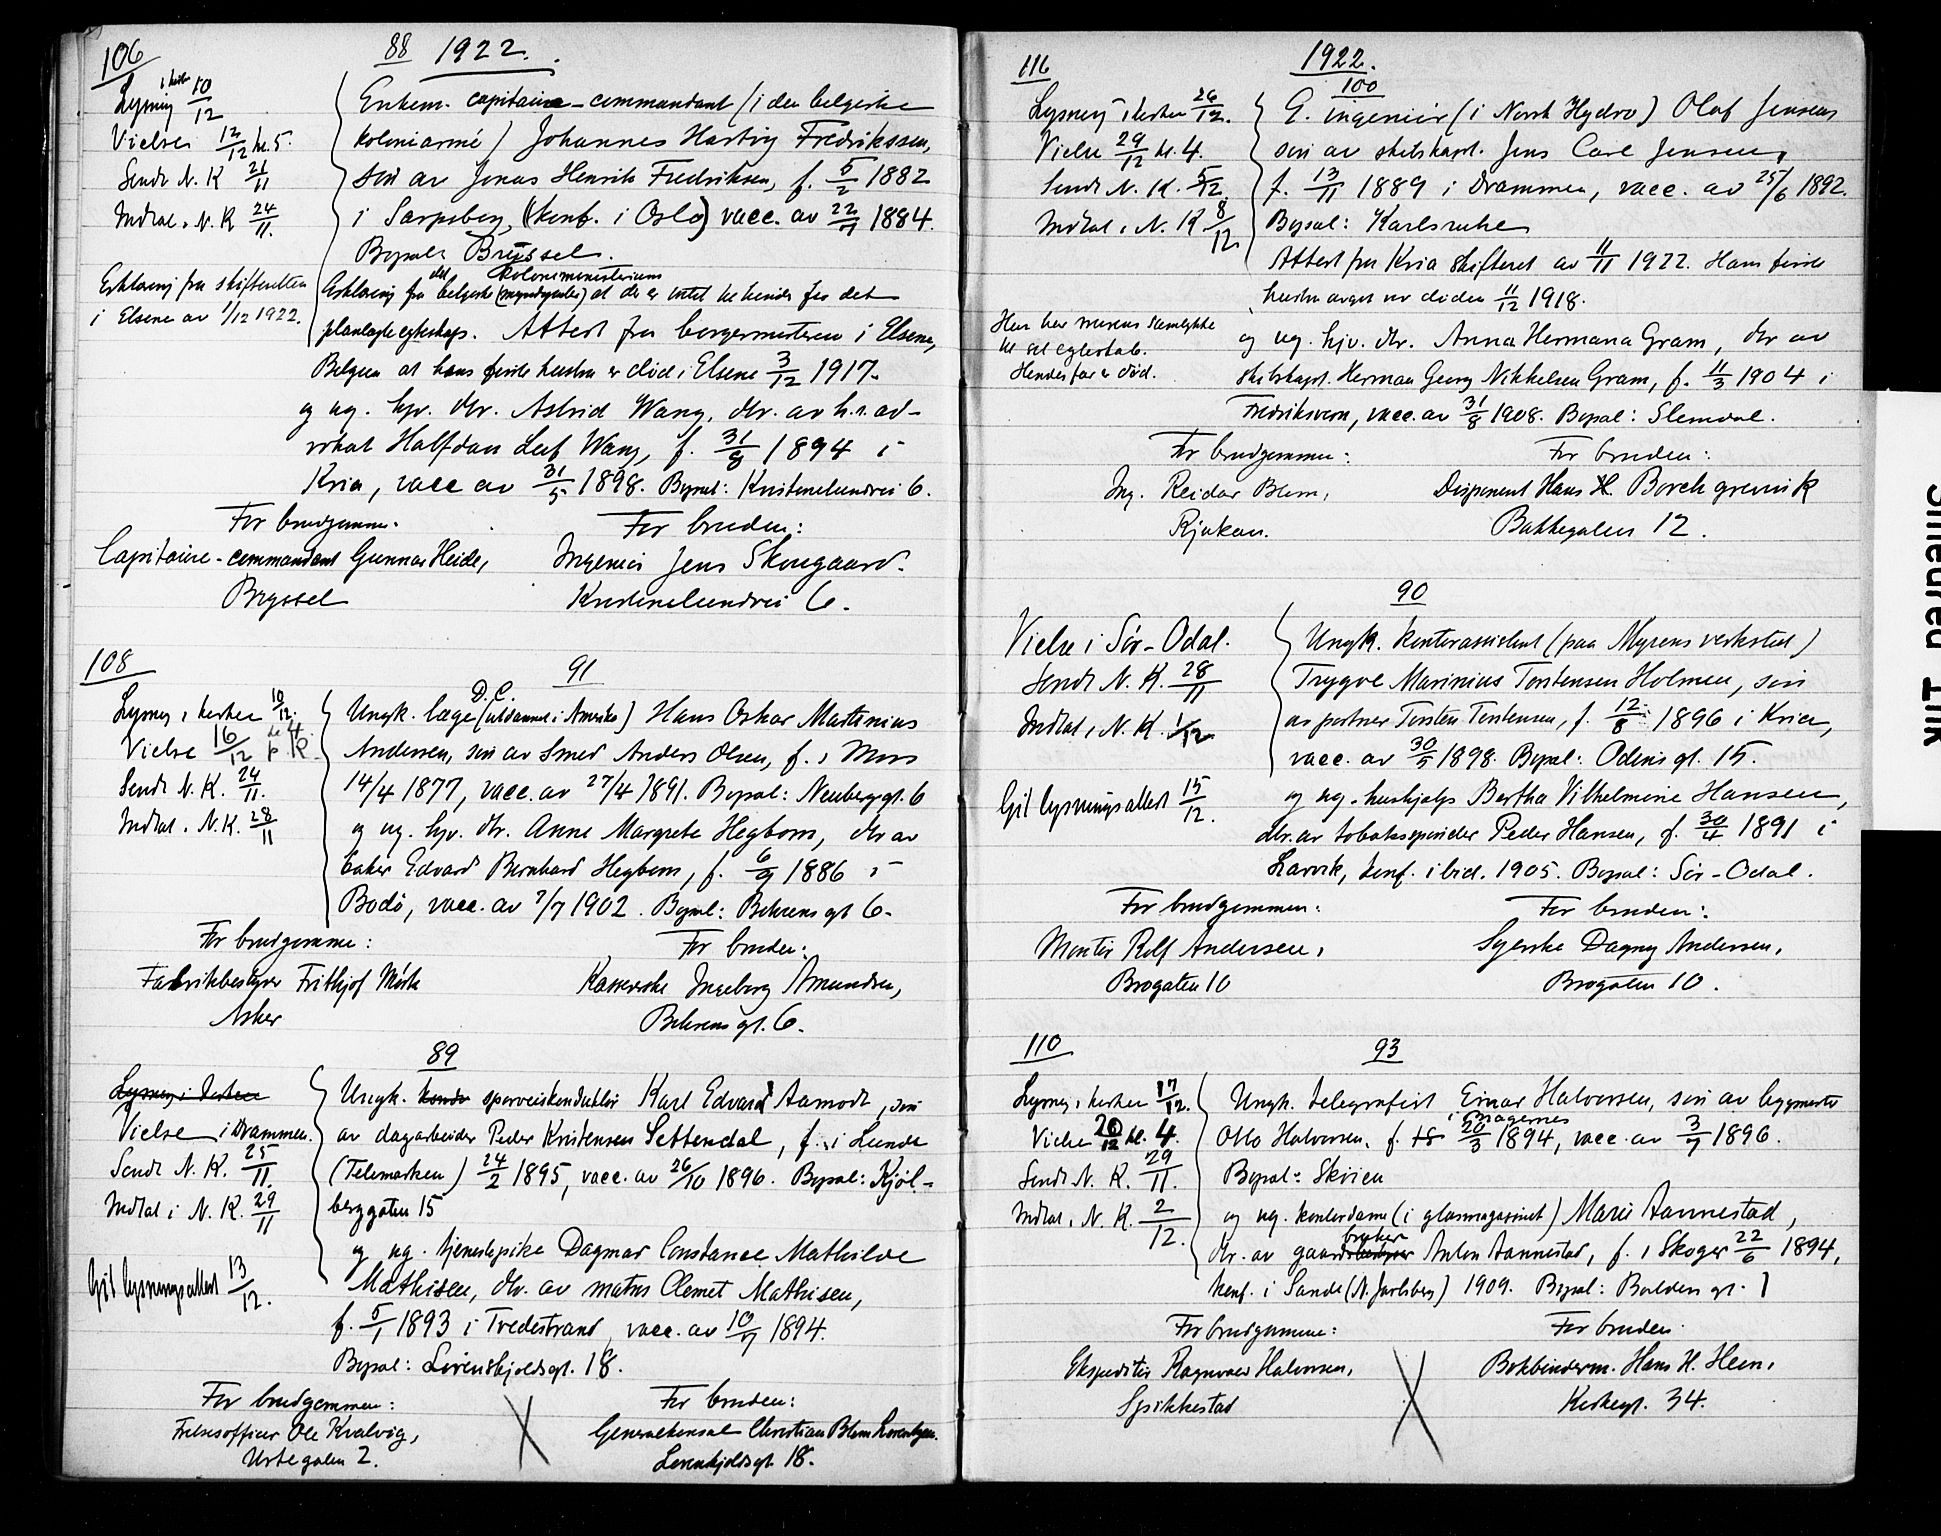 106
88 1922.
Lysning i kirken 10/12
Vielse 12/12 kl. 5.
Sendt N. K. 21/11
Indtat i N. K. 24/11.
Enkem. capitaine-commandant (i den belgiske
koloniarmé) Johannes Hartvig Fredrikssen,
søn av Jonas Henrik Fredriksen, f. 5/2 1882
i Sarpsborg, (konf. i Oslo) vacc. av 22/7 1884.
Bopæl: Brüssel.
Erklæring fra skifteretten
i Elsene av 1/12 1922.
Erklæring fra det belgiske koloniministerium at der er intet til hinder for det
planlagte egteskap. Attest fra borgermesteren i Elsene,
Belgien at hans første hustru er død i Elsene 3/12 1917.
og ug. hjv. dtr. Astrid Wang, dtr. av h.r.ad-
vokat Halfdan Leef Wang, f. 31/8 1894 i
Kria, vacc av 31/5 1898. Bopæl: Kristinelundvei 6.
For brudgommen. For bruden:
Capitaine-commandant Gunnar Heide, Ingeniør Jens Skougaard.
Bryssel Kristinelundvei 6.
108
91
Lysning i kirken 10/12.
Vielse 16/12 kl 4. p. K.
Sendt N. K. 24/11.
Indtat i N. K. 28/11
Ungk. læge D. C. (utdannet i Amerika) Hans Oskar Martinius
Andersen, søn av smed Anders Olsen, f. i Moss
14/4 1877, vacc. av 27/4 1891. Bopæl: Neuberggt. 6
og ug. hjv. dtr. Anna Margrete Hegbom, dtr av
baker Edvard Bernhard Hegbom, f. 6/9 1886 i
Bodø, vacc. av 7/7 1902. Bopæl: Behrens gt 6.
For brudgomme: For bruden:
Fabrikbestyrer Frithjof Mørk Kassererske Ingeborg Amundsen,
Asker Behrens gt. 6.
89
Lysning i kirken
Vielse i Drammen.
Sendt N. K. 25/11.
Indtat i N. K. 29/11
Git lysningsattest 13/12.
Ungk. kondu sporveiskonduktør Karl Edvard Aamodt, søn
av dagarbeider Peder Kristensen Settendal, f. i Lunde
(Telemarken) 24/2 1895, vacc. av 26/10 1896. Bopæl: Kjøl-
berggaten 15
og ug. tjenestepike Dagmar Constance Mathilde
Mathisen, dtr. av matros Clemet Mathisen,
f. 5/1 1893 i Tvedestrand, vacc. av 10/7 1894.
Bopæl: Løvenskjoldsgt. 18.
For brudgommen: For bruden:
Frelsesofficer Ole Kvalvig, Generalkonsul Christian Blom Lorentzen.
Urtegaten 2. Løvenskjoldsgt 18.
116
1922.
100
Lysning i kirken 26/12.
Vielse 29/12 kl. 4.
Sendt N. K. 5/12
Indtat i N. K. 8/12
E. ingeniør (i Norsk Hydro) Olaf Jensen
søn av skibskapt. Jens Carl Jensen,
f. 13/11 1889 i Drammen, vacc. av 25/6 1892.
Bopæl: Karlsruhe
Attest fra Kria skifteret av 11/11 1922. Hans første
hustru avgik ved døden 11/12 1918.
Hun har morens samtykke
til sit egteskab.
Hendes far er død.
og ug. hjv. dtr. Anna Hermana Gram, dtr av
skibskapt. Herman Georg Nikkelsen Gram, f. 11/3 1904 i
Fredriksvern, vacc. av 31/8 1908. Bopæl: Slemdal.
For brudgommen: For bruden:
Ing. Reidar Blom, Disponent Hans H. Borchgrevink
Rjukan. Bakkegaten 12.
90
Vielse i Sør-Odal.
Sendt N. K. 28/11
Indtat i N. K. 1/12
Git lysningsattest 15/12.
Ungk. kontorassistent (paa Myrens verksted)
Trygve Marinius Torstensen Holmen, søn
av portner Torsten Torstensen, f. 12/8 1896 i Kria,
vacc. av 30/5 1898. Bopæl: Odins gt. 15.
og ug. hushjælp Bertha Vilhelmine Hansen,
dtr. av tobaksspinder Peder Hansen, f. 30/4 1891 i
Larvik, konf. ibid. 1905. Bopæl: Sør-Odal.
For brudgommen: For bruden:
Montør Rolf Andersen, Syerske Dagny Andersen,
Brogaten 10 Brogaten 10.
110
93
Lysning i kirken 17/12.
Vielse 20/12 kl. 4.
Sendt N. K. 29/11.
Indtat i N. K. 2/12.
Ungk. telegrafist Einar Halvorsen, søn av bygmester
Otto Halvorsen, f. i Bragernes 20/3 1894, vacc. av 3/7 1896.
Bopæl: Skoien
og ug. kontordame (i glasmagasinet) Marie Aannestad,
dtr. av gaardbruker Anton Aannestad, f. i Skoger 22/6 1894,
konf. i Sande (N. Jarlsberg) 1909. Bopæl: Balders gt. 1
For brudgommen: For bruden:
Ekspeditør Ragnvald Halvorsen, Bokbinderm. Hans H. Heen,
Spikkestad Kirkegt. 34.